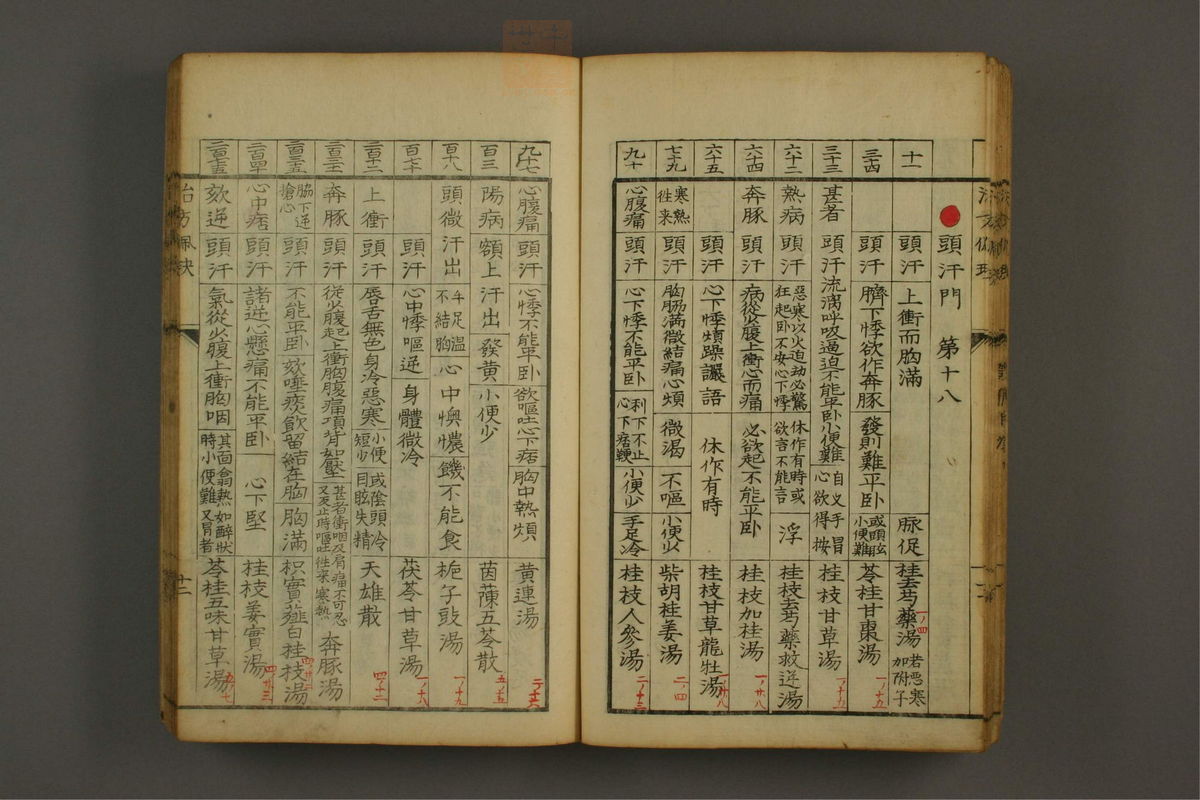 頭汗門 第十八
十一 頭汗 上衝而胸滿 脉促 桂去芍藥湯 若悪寒加附子 一ノ四
三四 頭汗 臍下悸欲作奔豚 發則難平卧 或頭眩小便難 苓桂甘棗湯 一ノ十五
三十三 甚者 頭汗 流漓呼吸逼迫不能平卧 小便難 自叉手冒心欲得按 桂枝甘草湯 一ノ十五
六十二 熱病 頭汗 惡寒以火迫劫必驚狂起卧不安心下悸 休作有時或欲言不能言 浮 桂枝去芍藥救逆湯
六十四 奔豚 頭汗 病從少腹上衝心而痛 必欲起不能平卧 桂枝加桂湯 一ノ廿八
六十五 頭汗 心下悸煩躁讝語 休作有時 桂枝甘草龍牡湯 一ノ廿八
七十九 寒熱往来 頭汗 胸脇滿微結痛心煩 微渴 不嘔 小便少 柴胡桂姜湯 二ノ四
九十 心腹痛 頭汗 心下悸不能平卧 利下不止心下痞鞕 小便少 手足冷 桂枝人參湯 二ノ十三
九十七 心腹痛 頭汗 心悸不能平卧 欲嘔吐心下痞 胸中熱煩 黄連湯
百三 陽病 額上汗出 發黄 小便少 茵蔯五苓散 五ノ五
百十八 頭微汗出 手足溫不結胸 心中懊憹 饑不能食 梔子豉湯 一ノ十九
百七十 頭汗 心中悸嘔逆 身體微冷 茯苓甘草湯 一ノ十九
上衝 頭汗 唇舌無色身冷惡寒 小便短少 或陰頭冷目眩失精 天雄散 四ノ十二
奔豚 頭汗 從少腹起上衝胸腹痛項背如壓 甚者衝咽及肩痛不可忍又发止時嘔吐往来寒熱 奔豚湯
脇下逆搶心 頭汗 不能平卧 欬唾痰飲留結在胸 胸滿 枳實薤白桂枝湯
心中痞 頭汗 諸逆心懸痛不能平卧 心下堅 桂枝姜實湯 四ノ廿三
欬逆 頭汗 氣從少腹上衝胸咽 其面翕熱如醉狀時小便難又冒者 苓桂五味甘草湯
治方佩決 十二